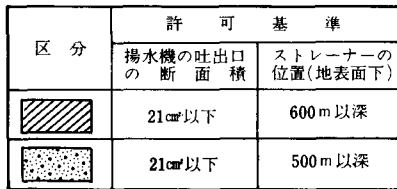 区分
許可基準
揚水機の吐出口
の断面積
ストレーナーの
位置(地表面下)
21c㎡以下
600m以深
21c㎡以下
500m以深